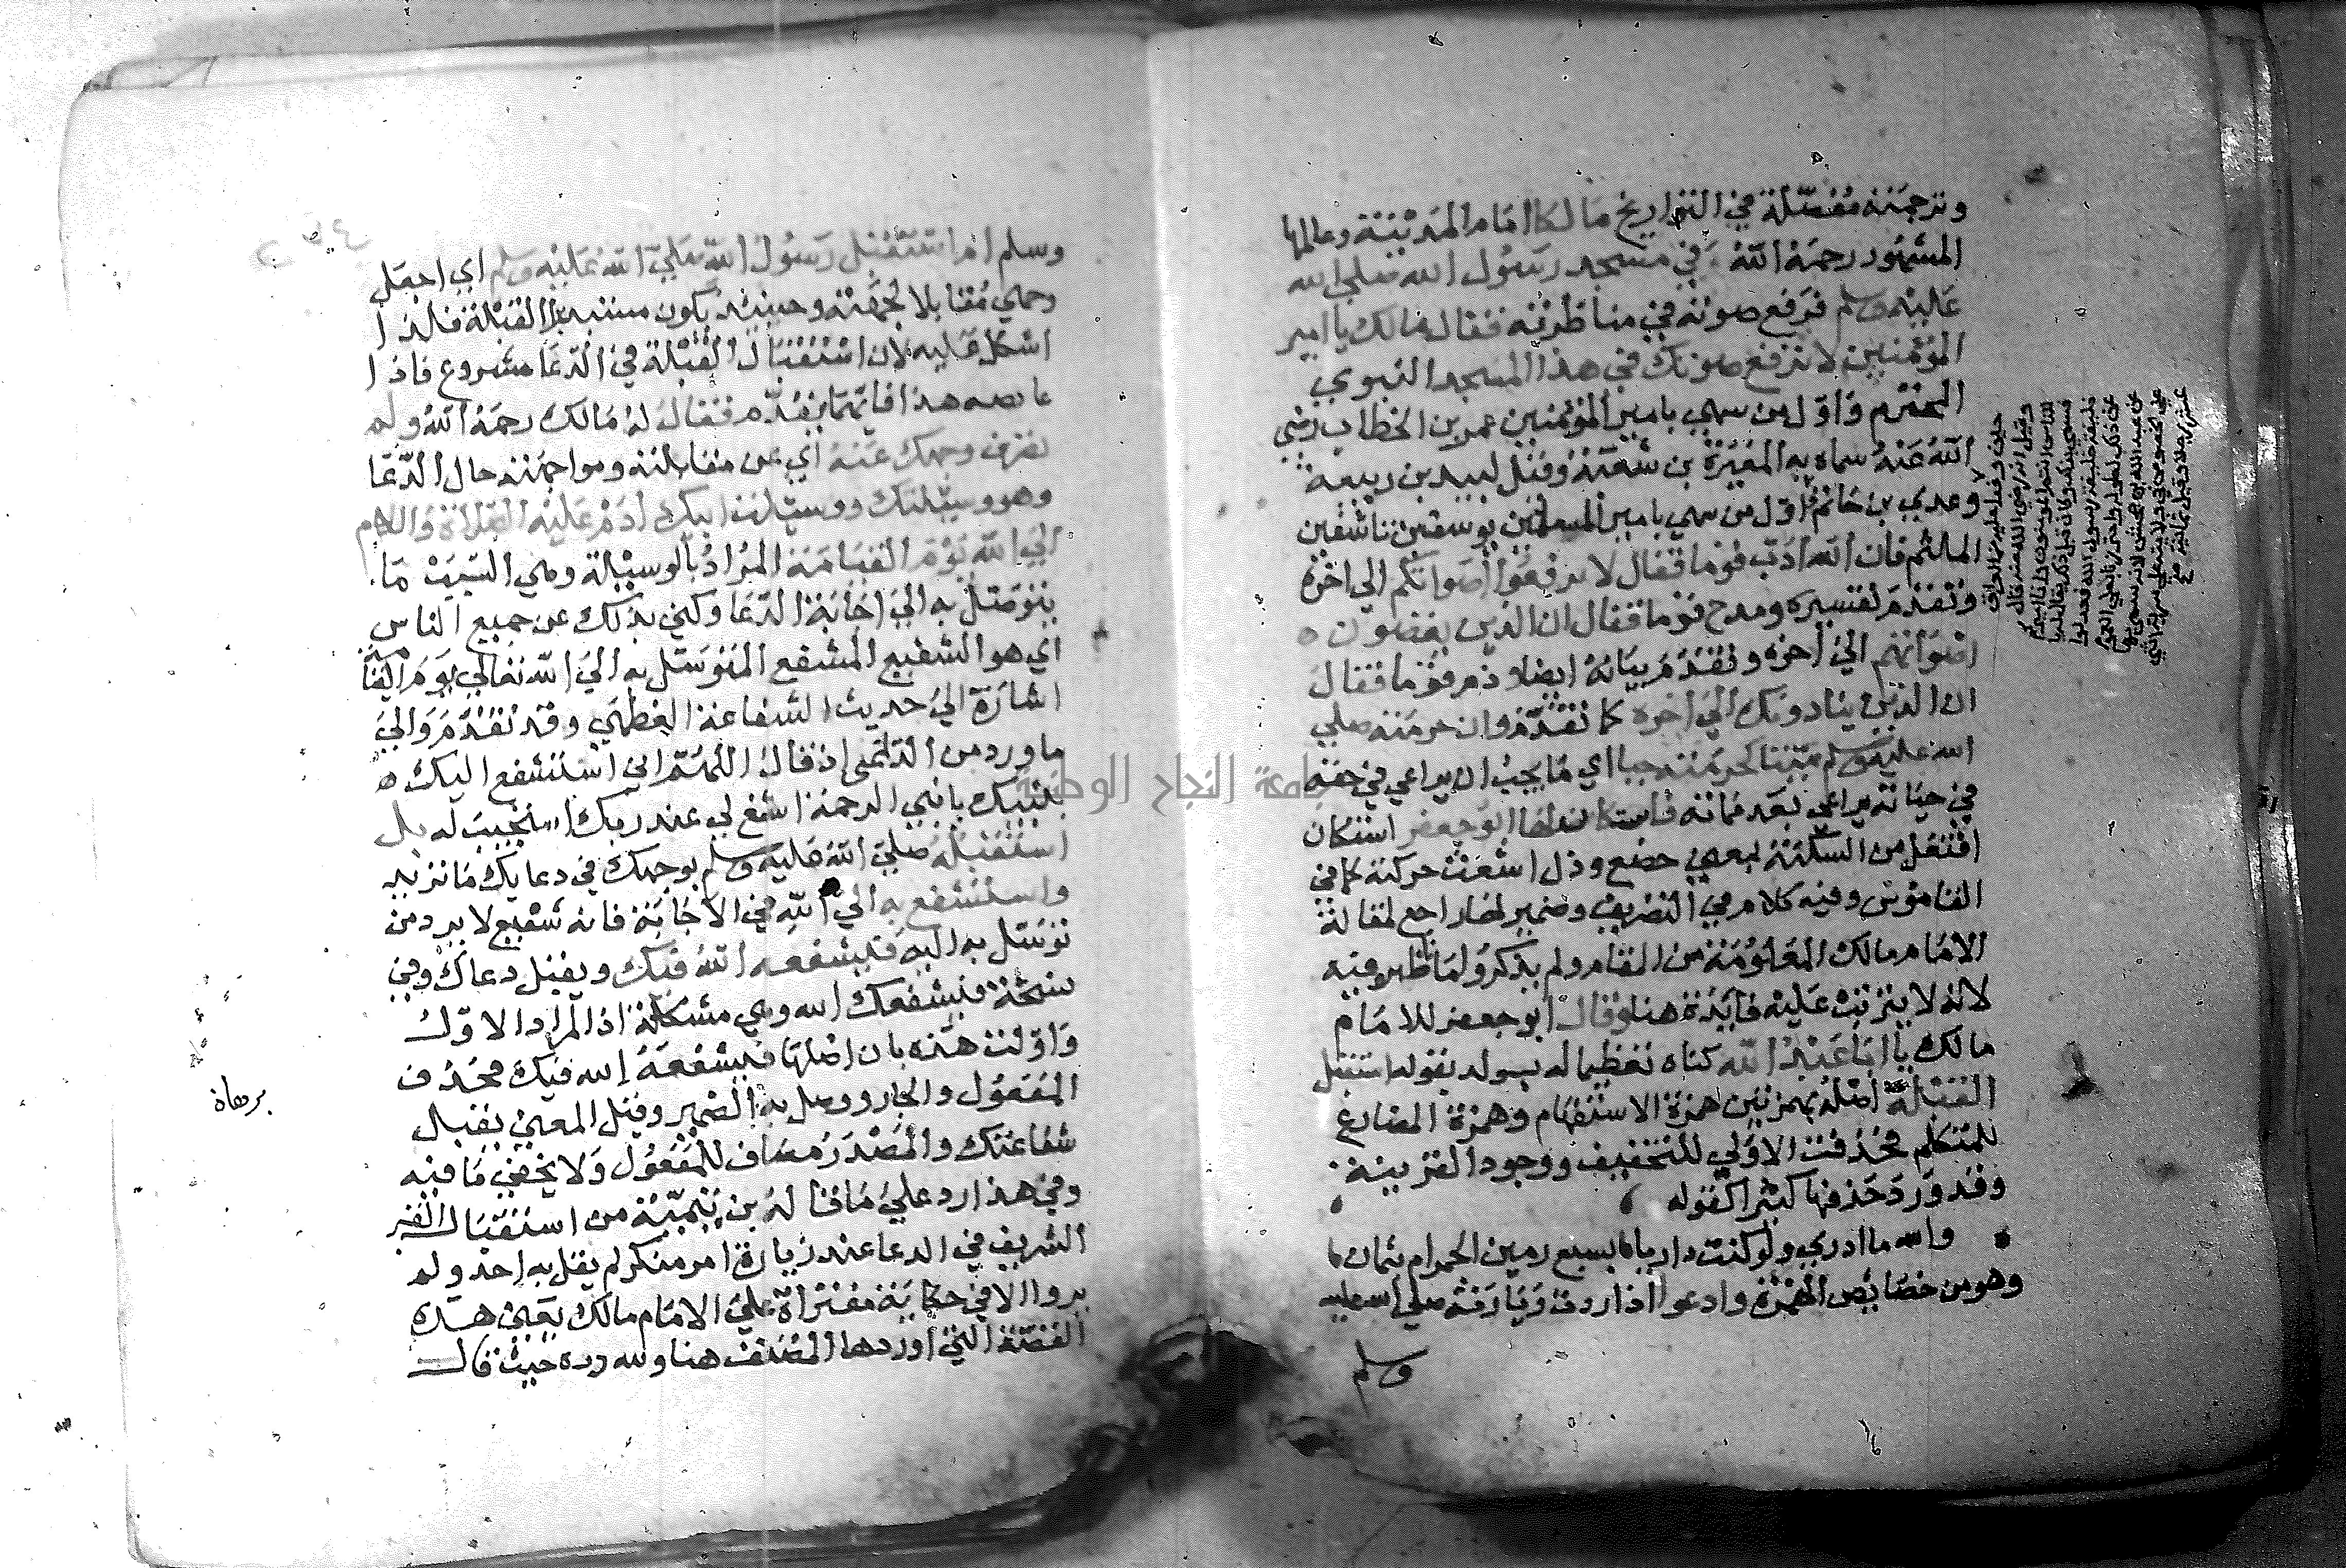 وترجمته مفصلة في التواريخ مالكا امام المدينة وعالمها
المشهور رحمه الله في مسجد رسول الله صلى الله
عليه وسلم فرفع صوته في مناظرته فقال مالك يا امير
المؤمنين لا ترفع صوتك في هذا المسجد النبوي
المحترم واول من سمي بامير المؤمنين عمر بن الخطاب رضي
الله عنه سماه به المغيرة بن شعبة وقيل لبيد بن ربيعة
وعدي بن حاتم واول من سمي بامير المسلمين يوسف بن تاشفين
الملثم فان الله ادب قوما فقال لا ترفعوا اصواتكم الى اخره
وتقدم تفسيره ومدح قوما فقال ان الذين يغضون
اصواتهم الى اخره وتقدم بيانه ايضا وذم قوما فقال
ان الذين ينادونك الى اخره كما تقدم وان حرمته صلى
الله عليه وسلم ميتا كحرمته حيا اي ما يجب ان يراعى في حقه
في حياته يراعى بعد مماته فاستكان لها ابو جعفر استكان
افتعل من السكينة بمعنى خضع وذل اشبعت حركته كما في
القاموس وفيه كلام في التصريف وضمير لها راجع لمقالة
الامام مالك المعلومة من المقام ولم يذكر ولما ظهر منه
لانه لا يترتب عليه فايدة هنا وقال ابو جعفر للامام
مالك يا ابا عبد الله كناه تعظيما له بقوله استقبل
القبلة اصله بهمزتين همزة الاستفهام وهمزة المضارع
للمتكلم فحذفت الاولى للتخفيف ووجود القرينة
وقد ورد حذفها كثيرا كقوله
والله ما ادري ولو كنت داريا بسبع رمين الجمرام بثمان
وهو من خصايص الهمزة وادعو اذا اردت زيارته صلى الله عليه
وسلم
وسلم ام استقبل رسول الله صلى الله عليه وسلم اي اجعل
وجهي مقابلا لجهته وحينئذ يكون مستدبرا القبلة فلذا
اشكل عليه لان استقبال القبلة في الدعا مشروع فاذا
عارضه هذا فايهما يقدم فقال له مالك رحمه الله ولم
تصرف وجهك عنه اي عن مقابلته ومواجهته حال الدعا
وهو وسيلتك ووسيلة ابيك ادم عليه الصلاة والسلام
الى الله يوم القيامة المراد بالوسيلة وهي السبب ما
يتوصل به الى اجابة الدعا وكنى بذلك عن جميع الناس
اي هو الشفيع المشفع المتوسل به الى الله تعالى يوم القيامة
اشارة الى حديث الشفاعة العظمى وقد تقدم والى
ما ورد من الداعي اذ قال اللهم اني استشفع اليك
بنبيك يا نبي الرحمة اشفع لي عند ربك استجيب له بل
استقبله صلى الله عليه وسلم بوجهك في دعايك ما تريد
واستشفع به الى الله في الاجابة فانه شفيع لا يرد من
توسل به اليه فيشفعه الله فيك ويقبل دعاك وفي
نسخة فيشفعك الله وهي مشكلة اذ المراد الاول
واولت هذه بان اصلها فيشفعه الله فيك فحذف
المفعول والجار ووصل به الضمير وقيل المعنى يقبل
شفاعتك والمصدر مضاف للمفعول ولا يخفى ما فيه
وفي هذا رد على ما قاله بن تيمية من استقبال القبر
الشريف في الدعا عند زيارة امر منكر لم يقل به احد ولم
يروا الا في حكاية مفتراة على الامام مالك يعني هذه
القصة التي اوردها المصنف هنا ولله دره حيث قال
جامعة النجاح الوطنية